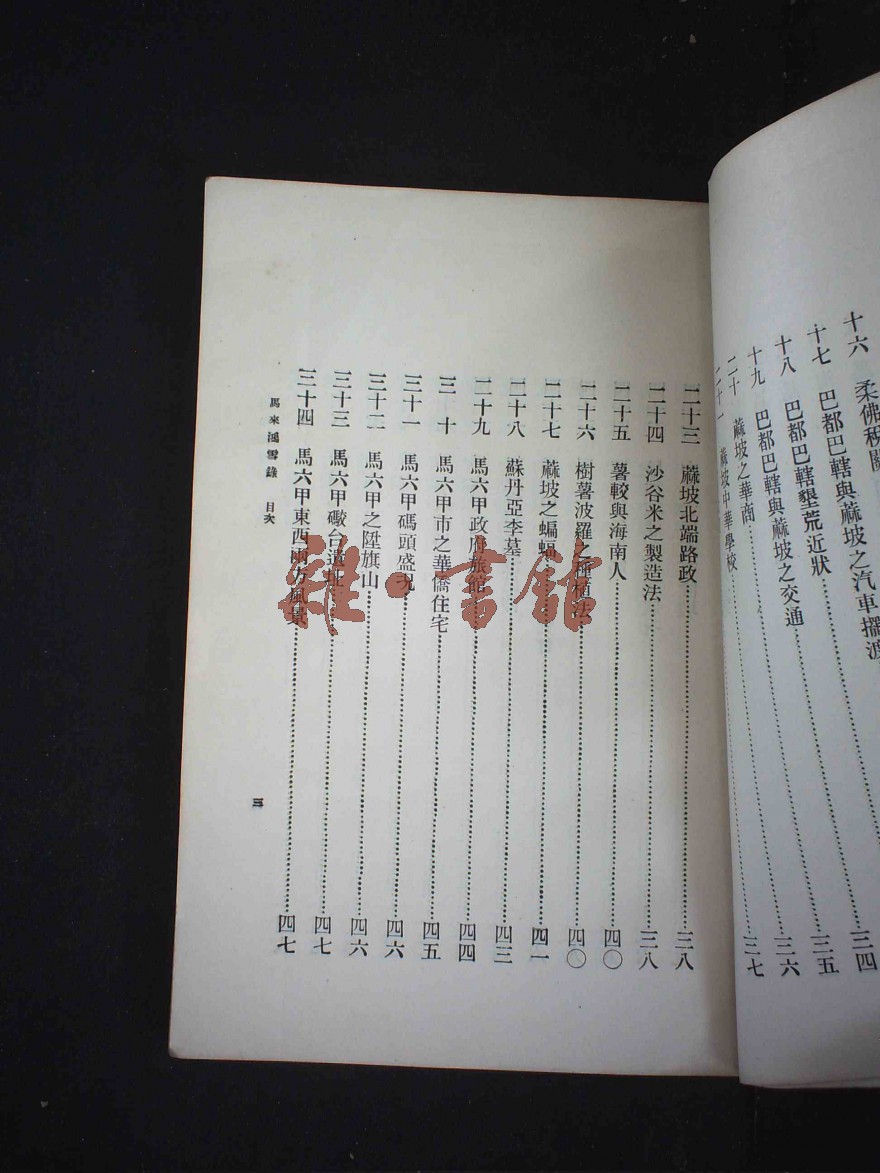 十六 柔佛稅關
十七 巴都巴轄與蔴坡之汽車擺渡 三四
十八 巴都巴轄墾荒近狀 三五
十九 巴都巴轄與蔴坡之交通 三六
二十 蔴坡之華商 三七
二十一 蔴坡中華學校
二十三 蔴坡北端路政 三八
二十四 沙谷米之製造法 三八
二十五 薯較與海南人 四〇
二十六 樹薯波羅之種植法 四〇
二十七 蔴坡之蝙蝠 四一
二十八 蘇丹亞李墓 四三
二十九 馬六甲政府旅館 四四
三十 馬六甲市之華僑住宅 四五
三十一 馬六甲碼頭盛况 四六
三十二 馬六甲之陞旗山 四六
三十三 馬六甲礮台遺址 四七
三十四 馬六甲東西兩方風景 四七
馬來鴻雪錄 目次
三
雜·書館